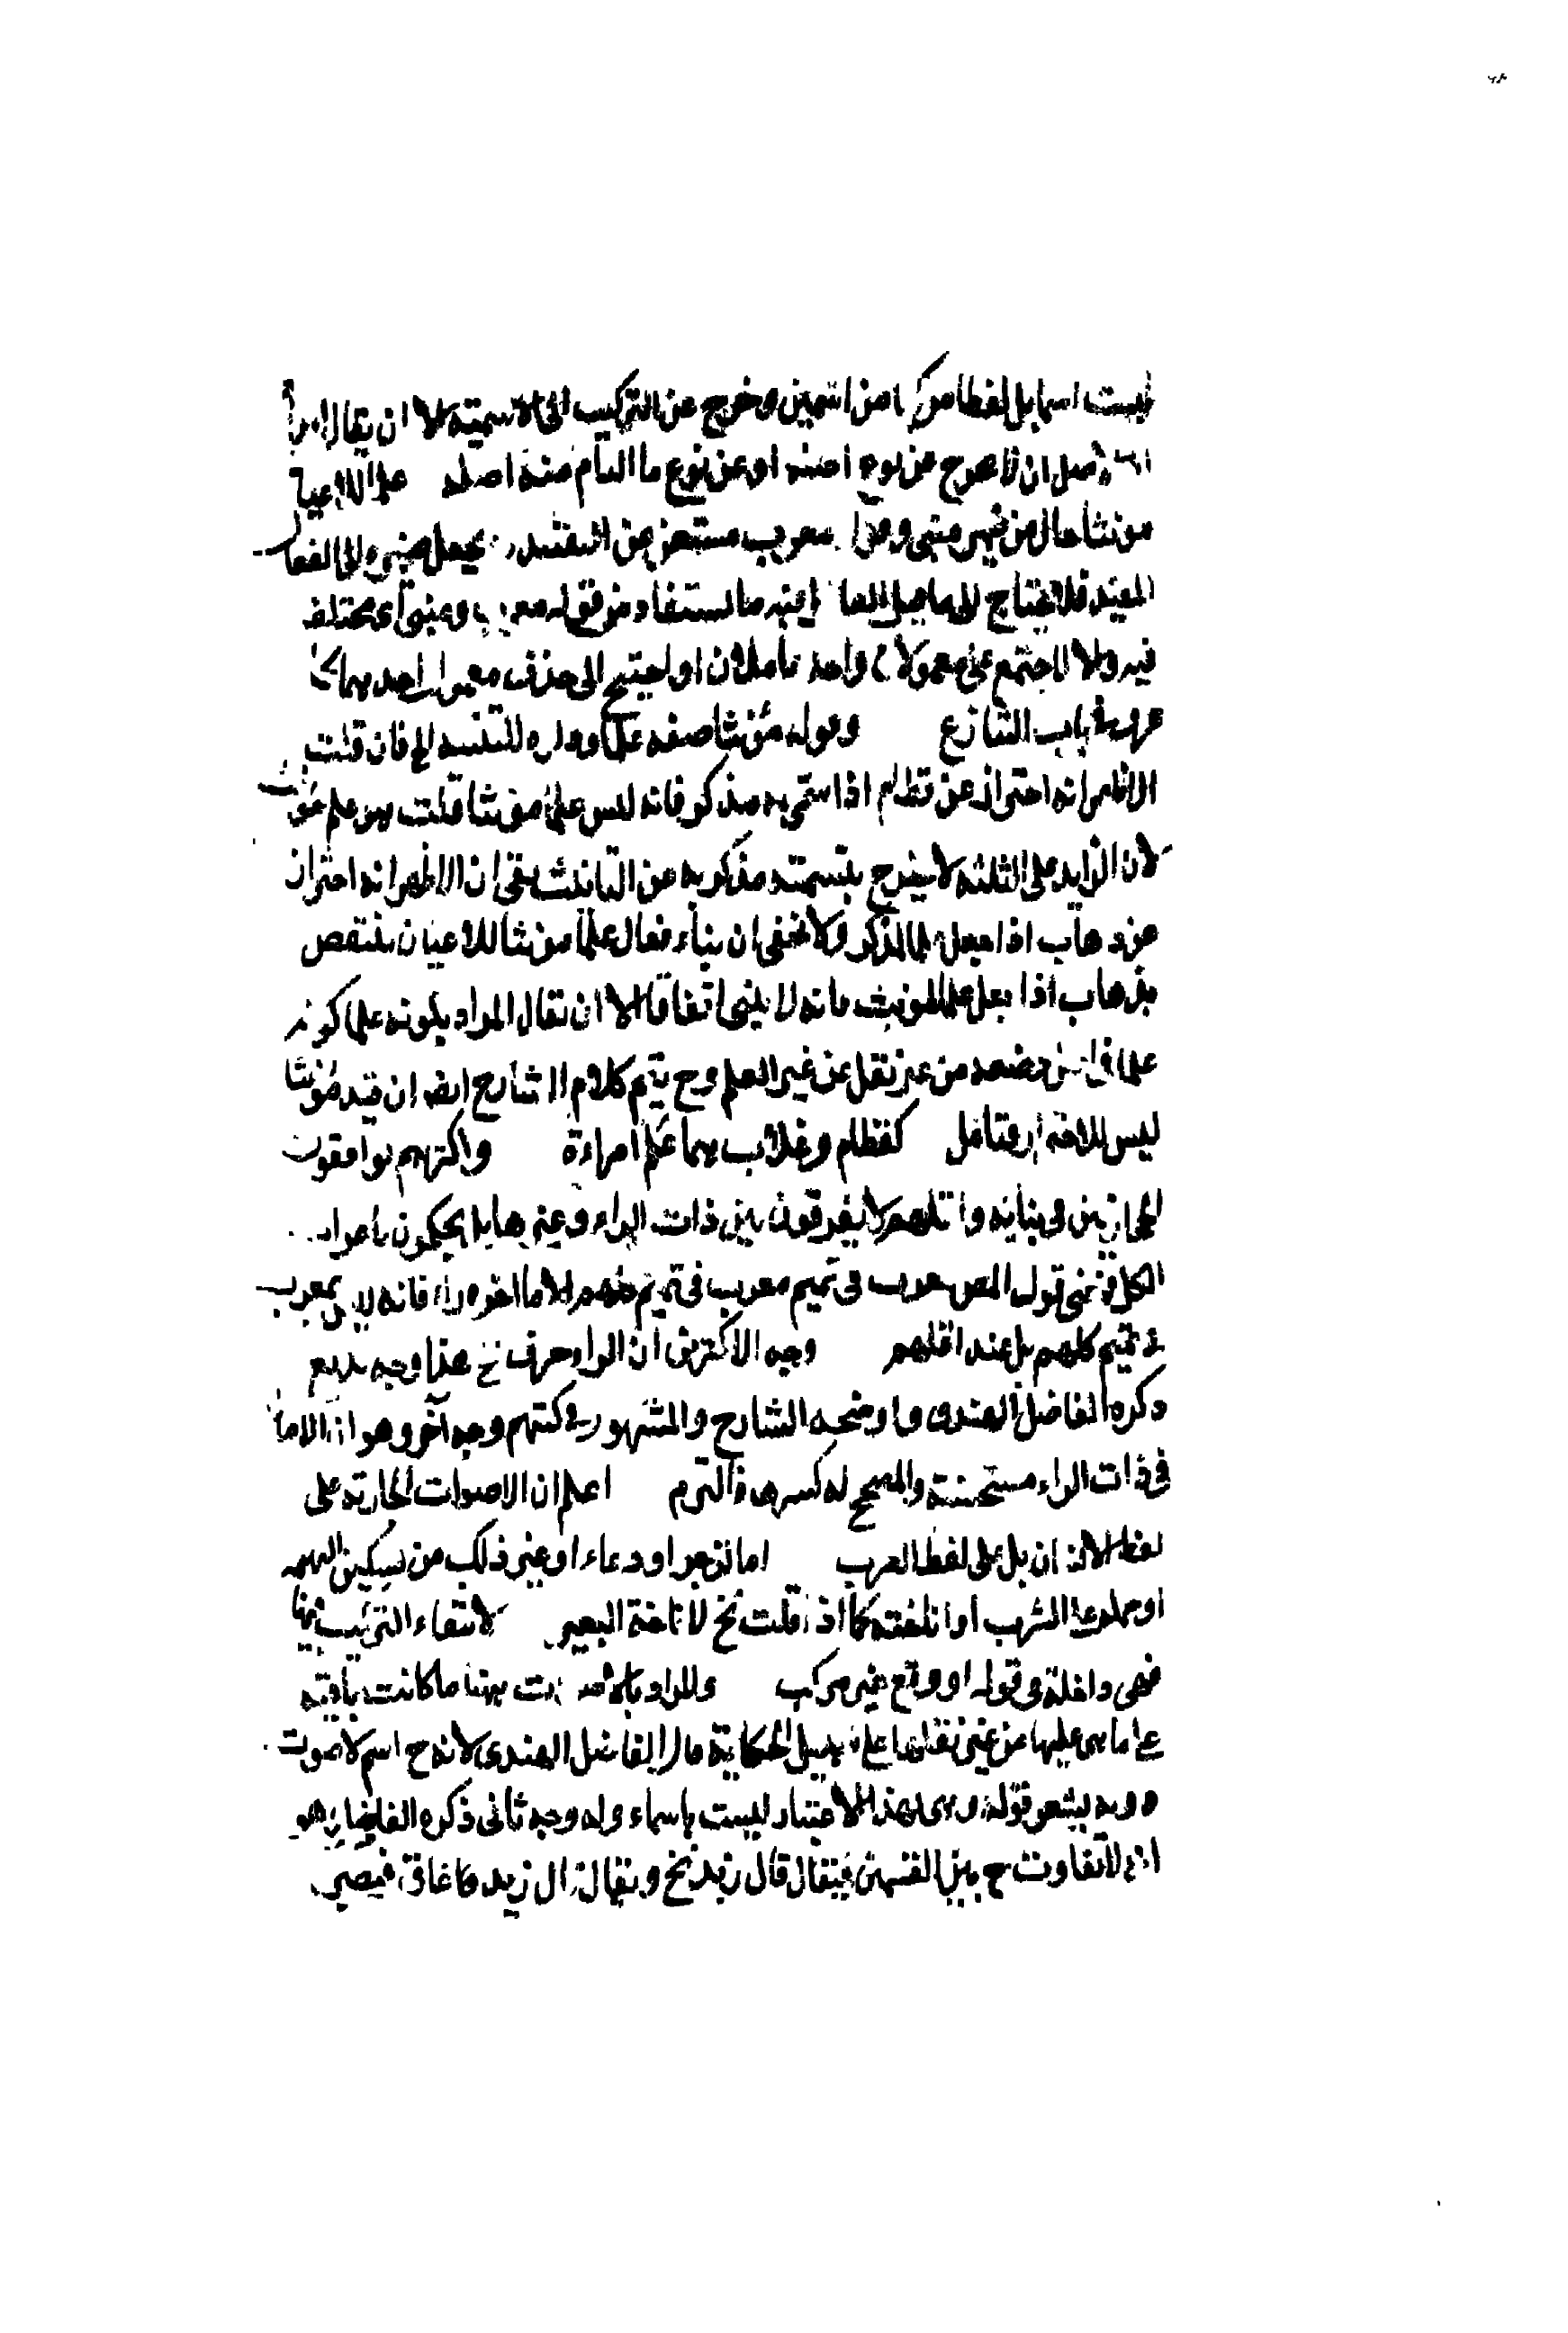 ليست اسما بل لفظا مركبا من اسمين وخرج عن التركيب الى الاسمية الا ان يقال
ان لا يخرج عن نوع اصله او عن نوع ما التأم منه اصله علما للاعيان
مؤنثا حال من ضمير مبنى و معرب مستغن عن التقدير
المعين فلا يحتاج الى ما يستفاد من قوله معرب ومبنى اى مختلف
فيه ولا اجتمع على معمول واحد عاملان او احتيج الى حذف معمول احدهما كما
عرف فى باب التنازع وقوله مؤنثا صفة علما فان قلت
الاظهر انه احتراز عن قطام اذا سمى به مذكر فانه ليس علما مؤنثا قلت هو علم مؤنث
لان الزايد على الثلثة لا يخرج بتسمية مذكر به عن التانيث بقى ان الاظهر انه احتراز
عن ذهاب اذا جعل علما لمذكر ولا يخفى ان بناء فعال علما مؤنثا للاعيان ينتقض
بذهاب اذا جعل علما لمؤنث فانه لا يبنى اتفاقا الا ان يقال المراد بكونه علما كونه
علما فى اصل وضعه من غير نقل عن غير العلم وح يتم كلام الشارح ايضا ان قيد مؤنثا
ليس للاحتراز فتامل كقطام وغلاب هما علما امراءة واكثرهم يوافقون
الحجازيين فى بنائه واقلهم لا يفرقون بين ذات الراء وغيرها بل يحكمون باعراب
الكل فمعنى قول المص معرب فى تميم معرب فى تميم كلهم الا ما اخره راء فانه ليس بمعرب
فى تميم كلهم بل عند اقلهم وجه الاكثرين ان الراء حرف الخ هذا وجه بديع
ذكره الفاضل الهندى واوضحه الشارح والمشهور فى كتبهم وجه آخر وهو ان الامالة
فى ذات الراء مستحسنة والمصحح له كسرها فالتزم اعلم ان الاصوات الجارية على
لفظ الانسان بل على لفظ العرب اما لزجر او دعاء او غير ذلك من تسكين البهيمة
او حملها على الشرب او اناخته كما اذا قلت نخ لاناخة البعير لانتفاء التركيب فيها
فهى داخلة فى قوله او وقع غير مركب والمراد بالاصوات ههنا ما كانت باقية
على ما هى عليها من غير نقلها على سبيل الحكاية قال الفاضل الهندى لانه ح اسم لاصوت
وبه يشعر قوله وهى بهذا الاعتبار ليست باسماء وله وجه ثانى ذكره الفاضل وهو
انه لا تفاوت ح بين القسمين فيقال قال زيد نخ ويقال قال زيد غاق فيصير